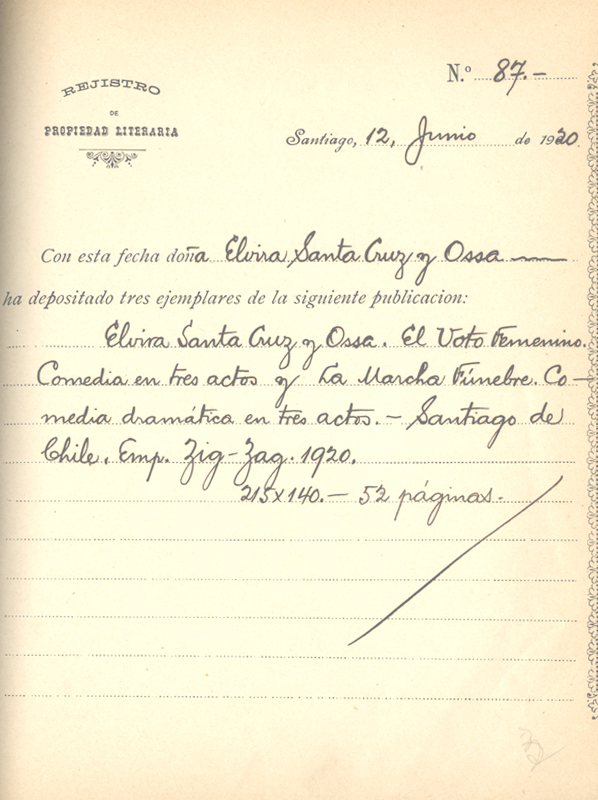 N.º 87.-
REJISTRO
DE
PROPIEDAD LITERARIA
Santiago, 12, Junio de 1920.
Con esta fecha doña Elvira Santa Cruz y Ossa —
ha depositado tres ejemplares de la siguiente publicacion:
Elvira Santa Cruz y Ossa. El Voto Femenino.
Comedia en tres actos y La Marcha Fúnebre. Co-
media dramática en tres actos.- Santiago de
Chile. Emp. Zig-Zag. 1920.
215x140.- 52 páginas.-